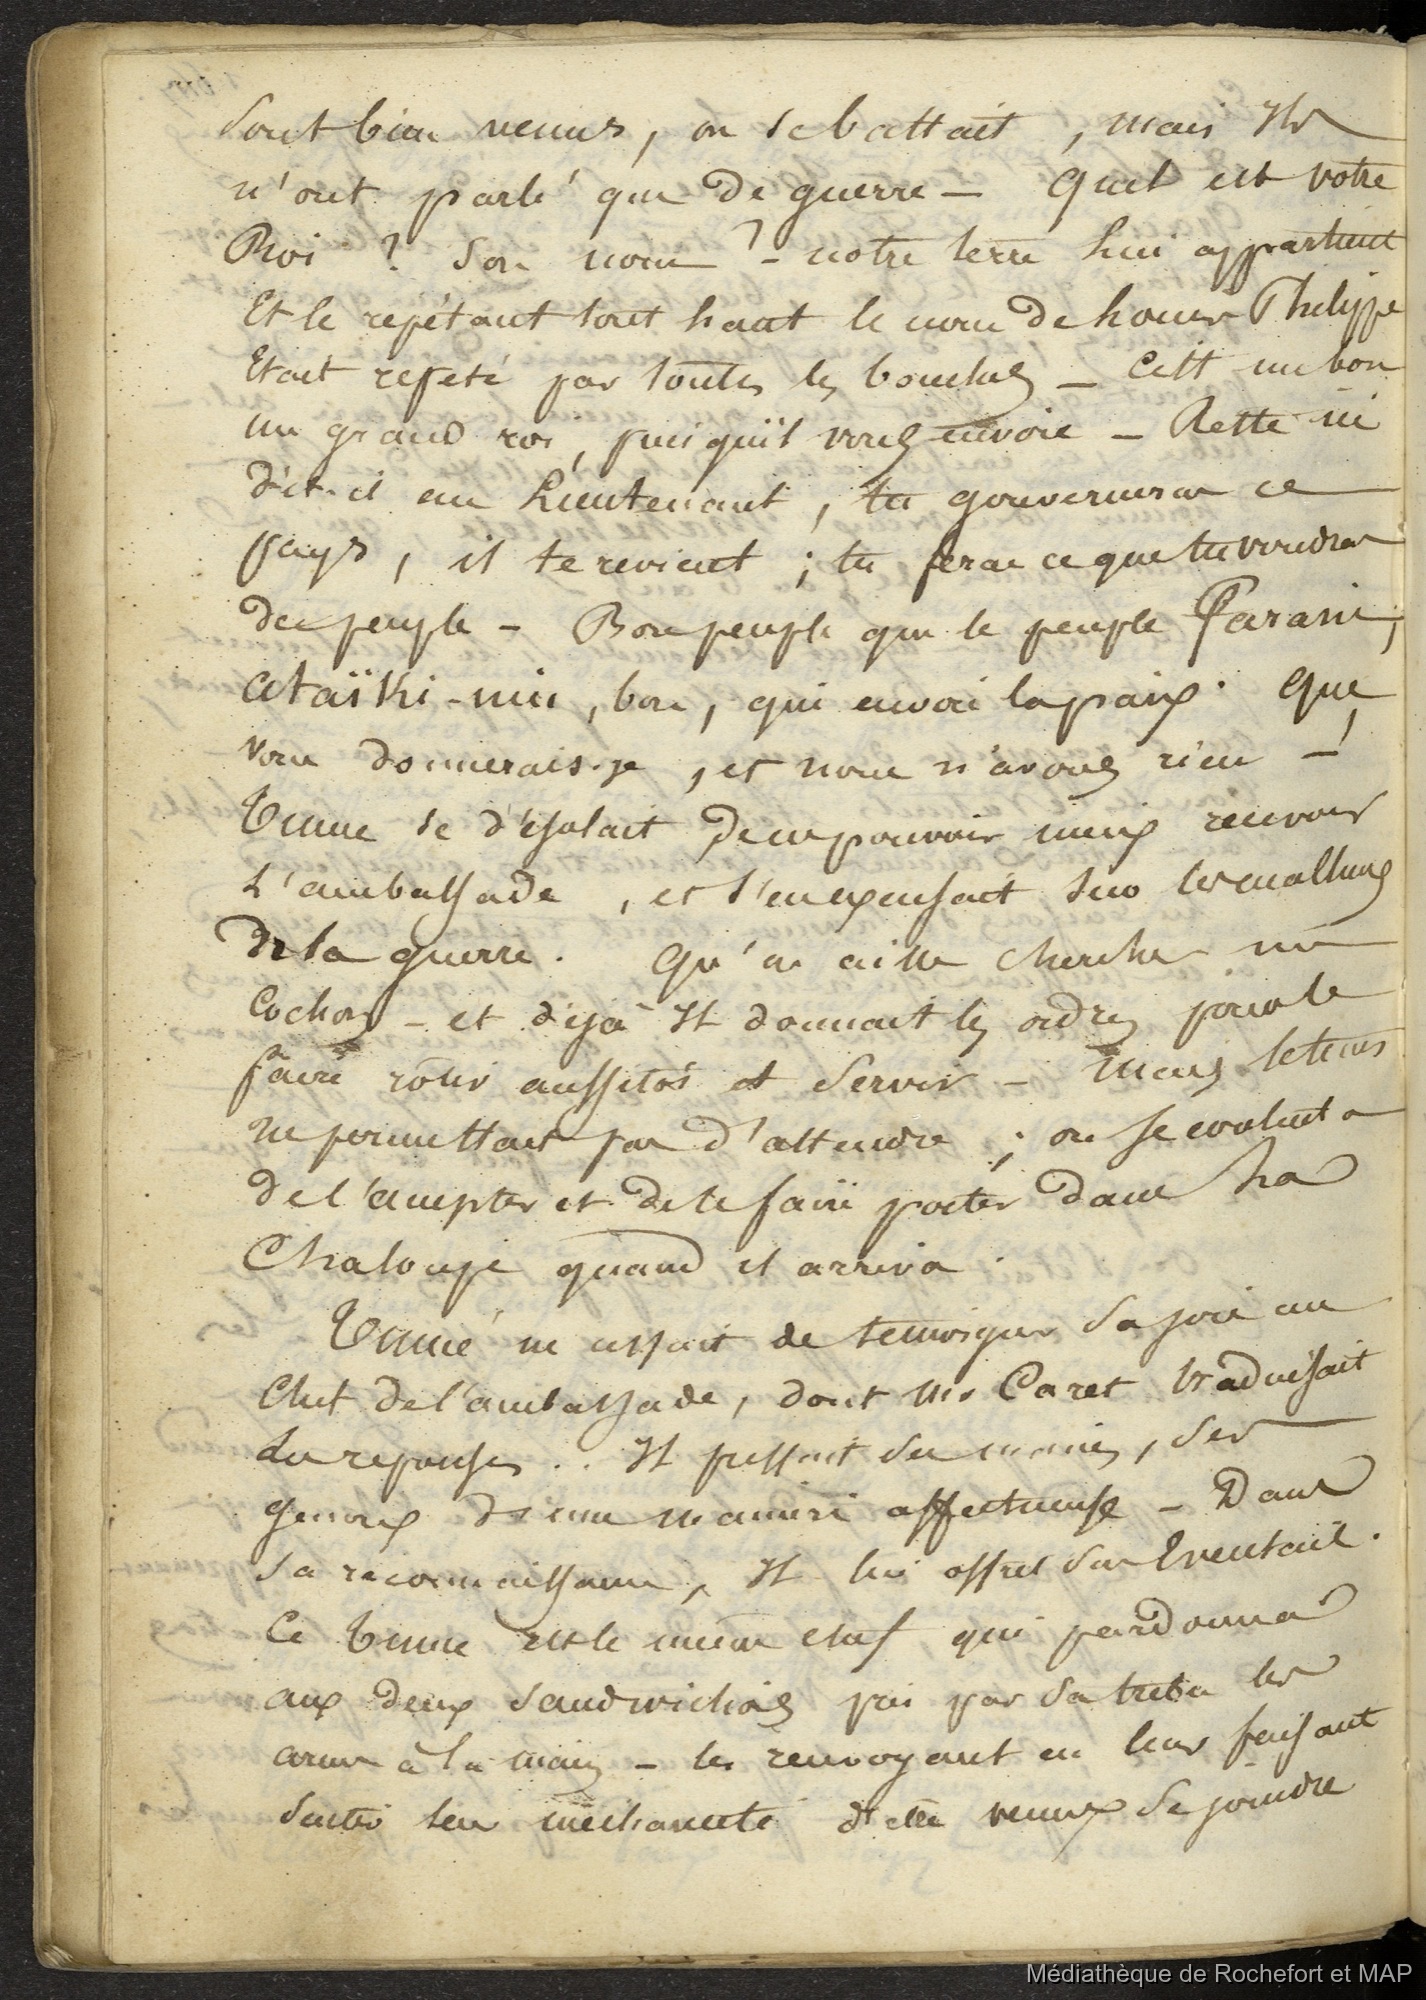 Sont bien venus, on se battait, mais Ils
n'ont parlé que de guerre — Quel est votre
Roi ? Son nom ? — notre terre lui appartient
Et le répétant tout haut le nom de Louis Philippe
Etait répété par toutes les bouches — C'est un bon
un grand roi, puisqu'il vous envoie — Reste ici
dit-il au Lieutenant, tu gouverneras ce
pays, il te revient ; tu feras ce que tu voudras
du peuple — Bon peuple que le peuple Farani,
ataïki-mii, bon, qui envoie la paix. Que
vous donnerais-je, et nous n'avons rien —!
se désolait de ne pouvoir mieux recevoir
L'ambassade, et s'en excusait sur les malheurs
de la guerre. Qu'on aille chercher un
Cochon — et déjà Il donnait les ordres pour le
faire rôtir aussitôt et servir — Mais le tems
ne permettait pas d'attendre ; on se contenta
de l'accepter et de le faire porter dans la
Chaloupe quand il arriva.
ne cessait de temoigner sa joie au
Chef de l'ambassade, dont Mr Caret traduisait
les reponses .. Il pressait ses mains, ses
genoux d'une manière affectueuse — Dans
sa reconnaissance, Il lui offrit son Eventail.
Ce est le même chef qui pardonna
aux deux Sandwichois pris par sa tribu les
armes à la main — les renvoyant en leur faisant
sentir leur méchanceté d'être venus se joindre
Médiathèque de Rochefort et MAP